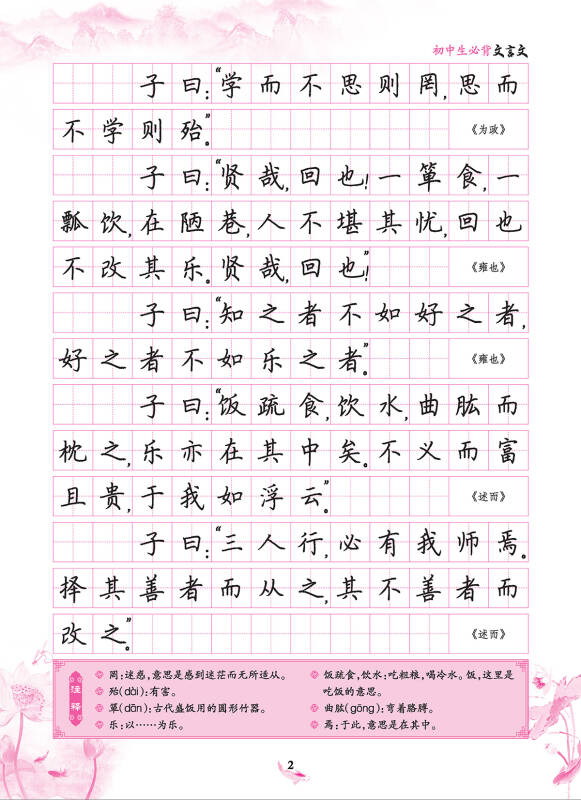 初中生必背文言文
子曰：“学而不思则罔，思而
不学则殆。”《为政》
子曰：“贤哉，回也！一箪食，一
瓢饮，在陋巷，人不堪其忧，回也
不改其乐。贤哉，回也！”《雍也》
子曰：“知之者不如好之者，
好之者不如乐之者。”《雍也》
子曰：“饭疏食，饮水，曲肱而
枕之，乐亦在其中矣。不义而富
且贵，于我如浮云。”《述而》
子曰：“三人行，必有我师焉。
择其善者而从之，其不善者而
改之。”《述而》
注释
罔：迷惑，意思是感到迷茫而无所适从。
殆(dài)：有害。
箪(dān)：古代盛饭用的圆形竹器。
乐：以……为乐。
饭疏食，饮水：吃粗粮，喝冷水。饭，这里是
吃饭的意思。
曲肱(gōng)：弯着胳膊。
焉：于此，意思是在其中。
2